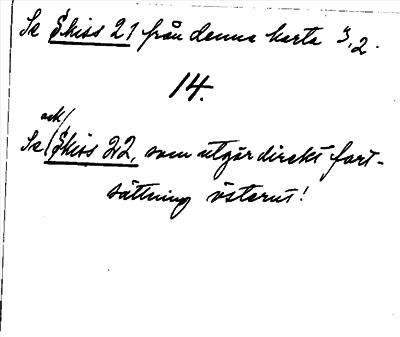 Se Skiss 21 från denna karta 3,2.
14.
ock/
Se / Skiss 22, som utgör direkt fort-
sättning österut!